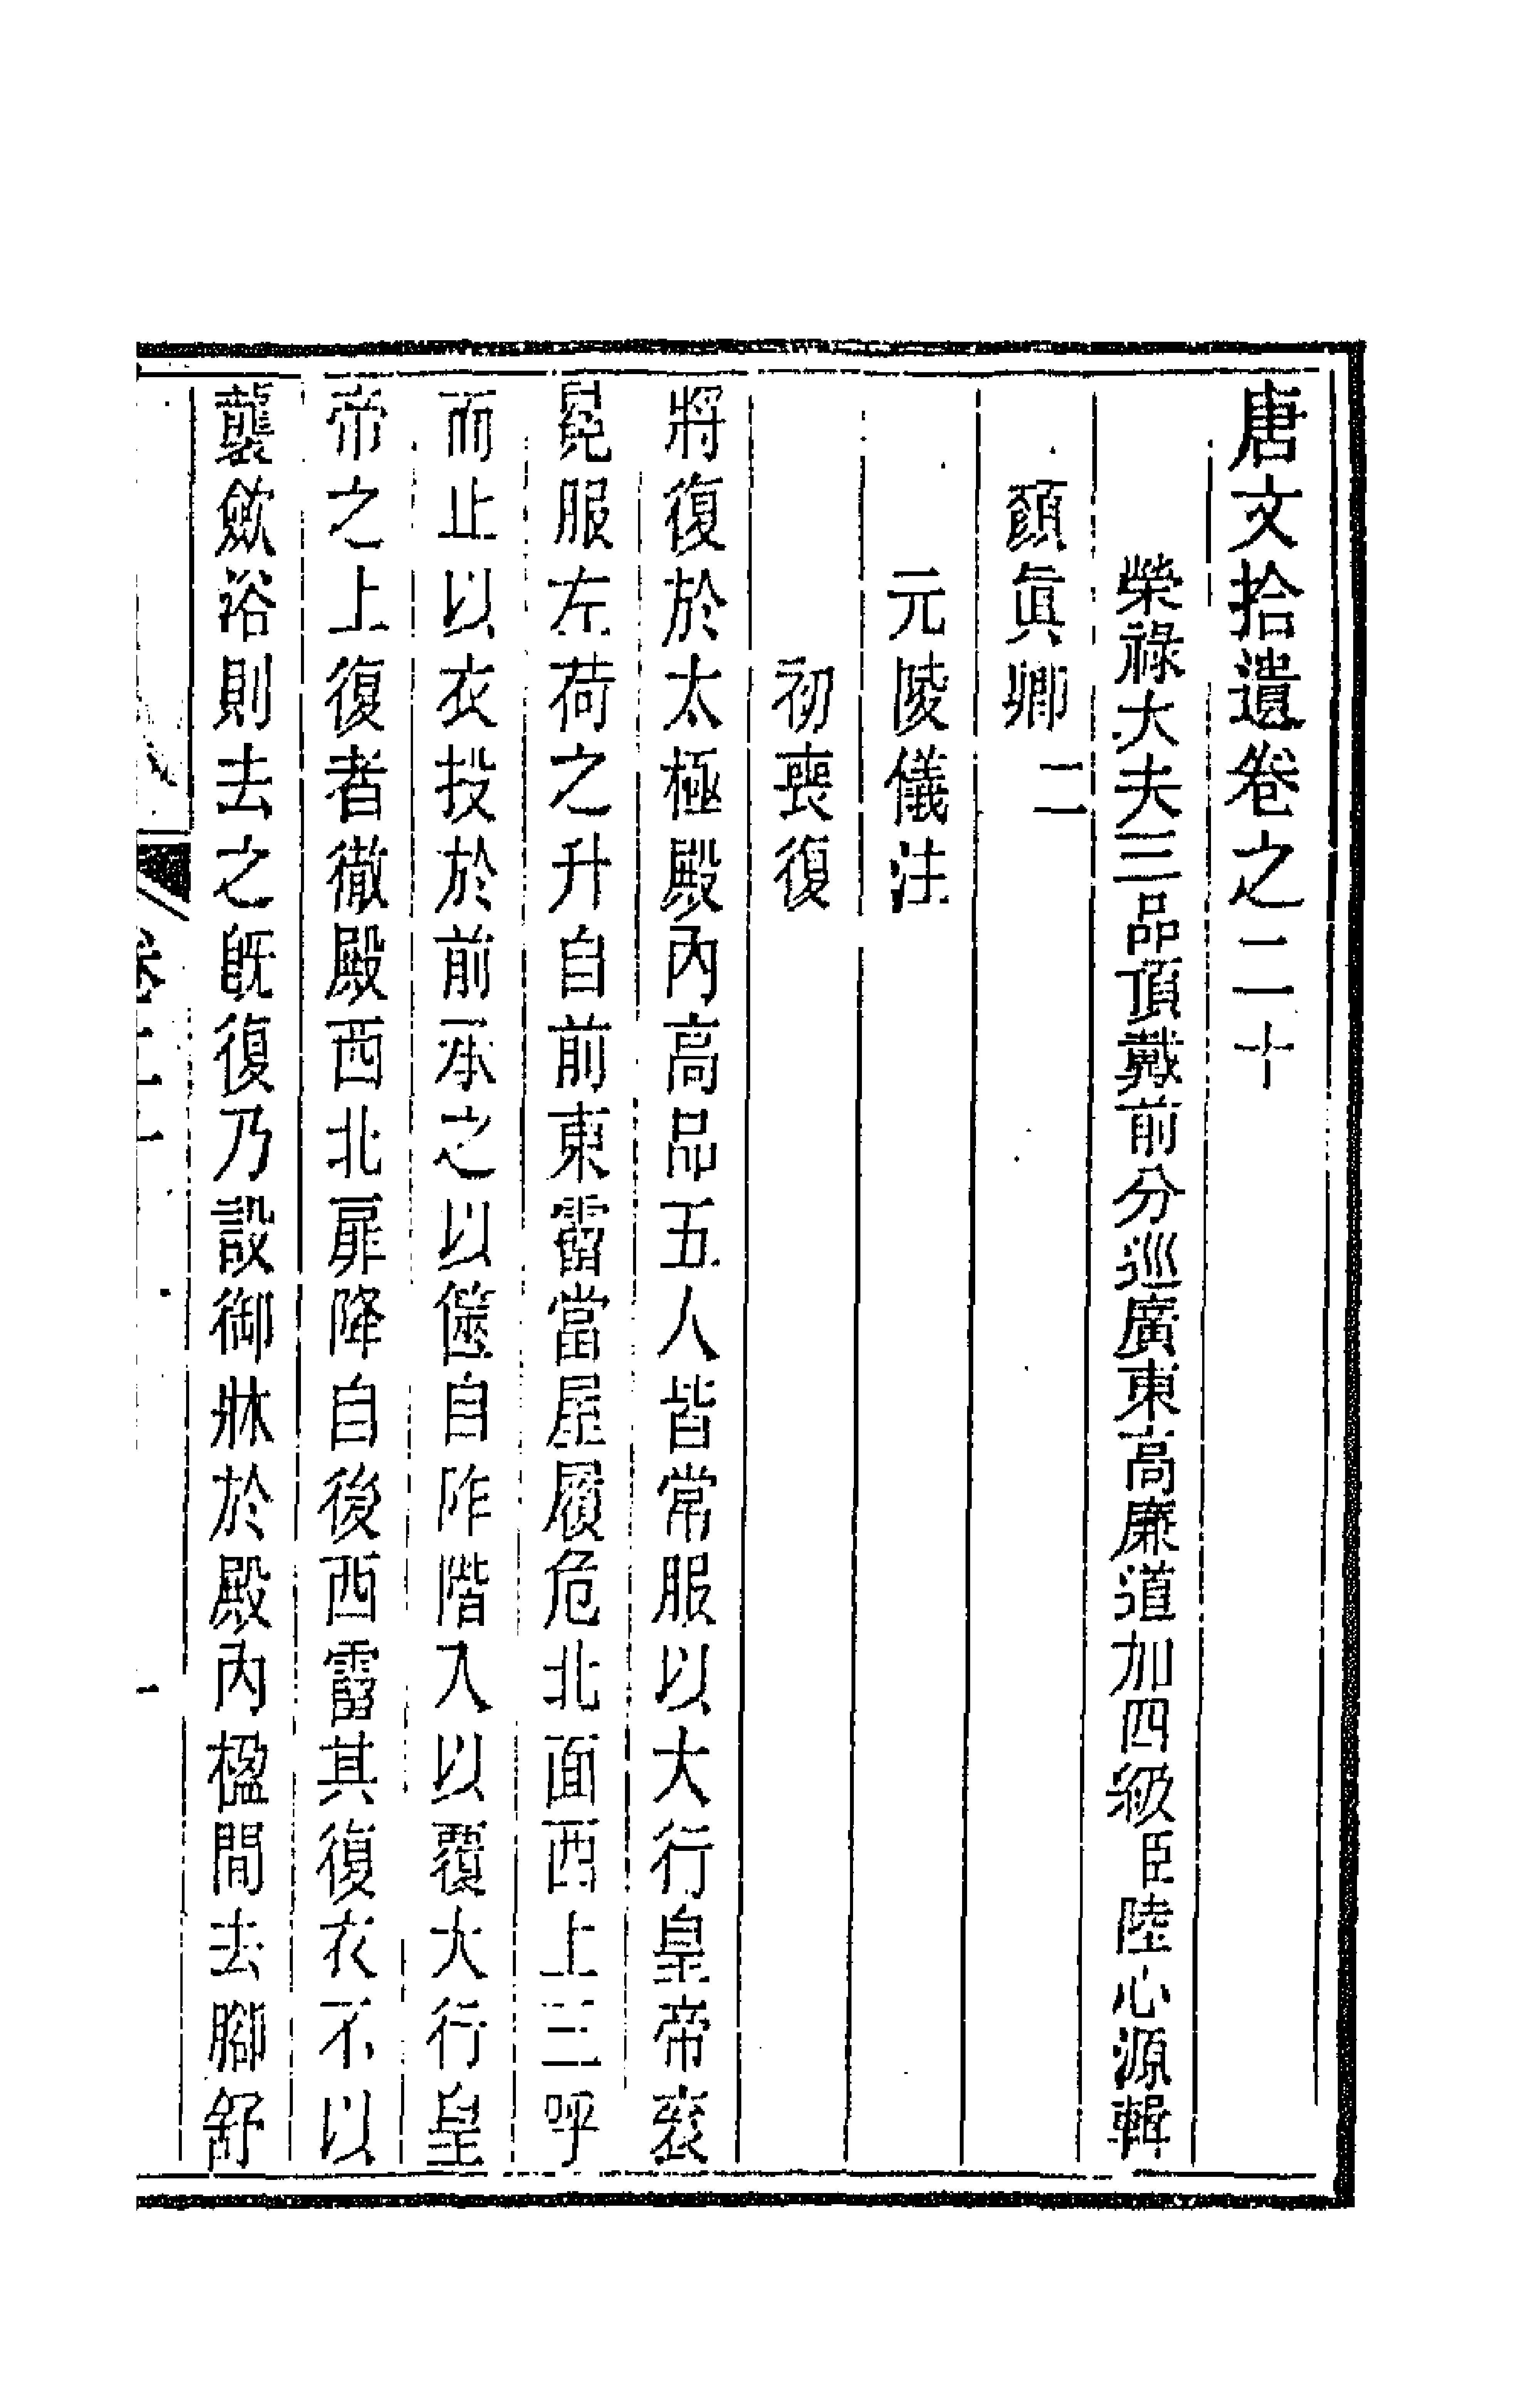 唐文拾遺卷之二十
榮祿大夫三品頂戴前分巡廣東高廉道加四級臣陸心源輯
顏眞卿二
元陵儀注
初喪復
將復於太極殿內高品五人皆常服以大行皇帝袞
冕服左荷之升自前東霤當屋履危北面西上三呼
而止以衣投於前承之以篋自阼階入以覆大行皇
帝之上復者徹殿西北扉降自後西霤其復衣不以
襲斂浴則去之旣復乃設御牀於殿內楹間去腳舒
卷二十 一